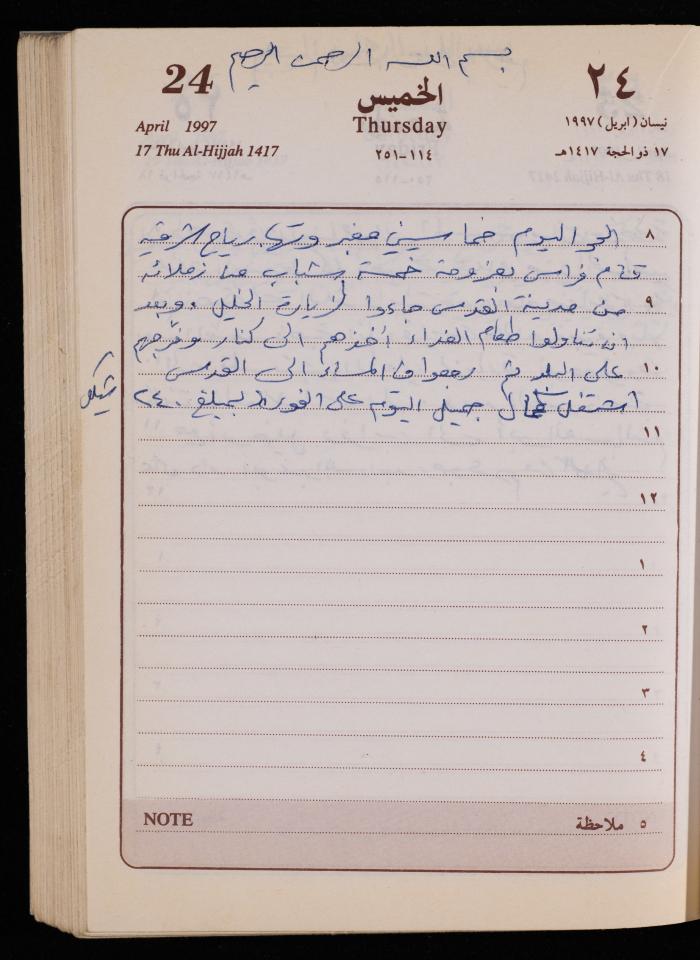 بسم الله الرحمن الرحيم
24
الخميس
٢٤
April 1997
Thursday
نيسان (ابريل) ١٩٩٧
17 Thu Al-Hijjah 1417
١١٤-٢٥١
١٧ ذو الحجة ١٤١٧هـ
٨ الجو اليوم خماسيني مغبر ورياح شرقية
قام فراس بعزومة خمسة شباب من زملائه
٩ من مدينة القدس جاءوا لزيارة الخليل وبعد
ان تناولوا طعام الغداء أخذهم الى كنار وفرجهم
١٠ على البلد ثم رجعوا في المساء الى القدس
اشتغل جميل اليوم على الفورد بمبلغ ٢٤٠
شيكل
١١
١٢
١
٢
٣
٤
NOTE
٥ ملاحظة